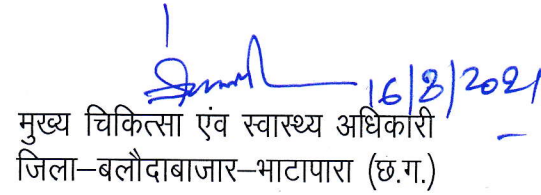 16/8/2021
मुख्य चिकित्सा एंव स्वास्थ्य अधिकारी
जिला–बलौदाबाजार–भाटापारा (छ.ग.)